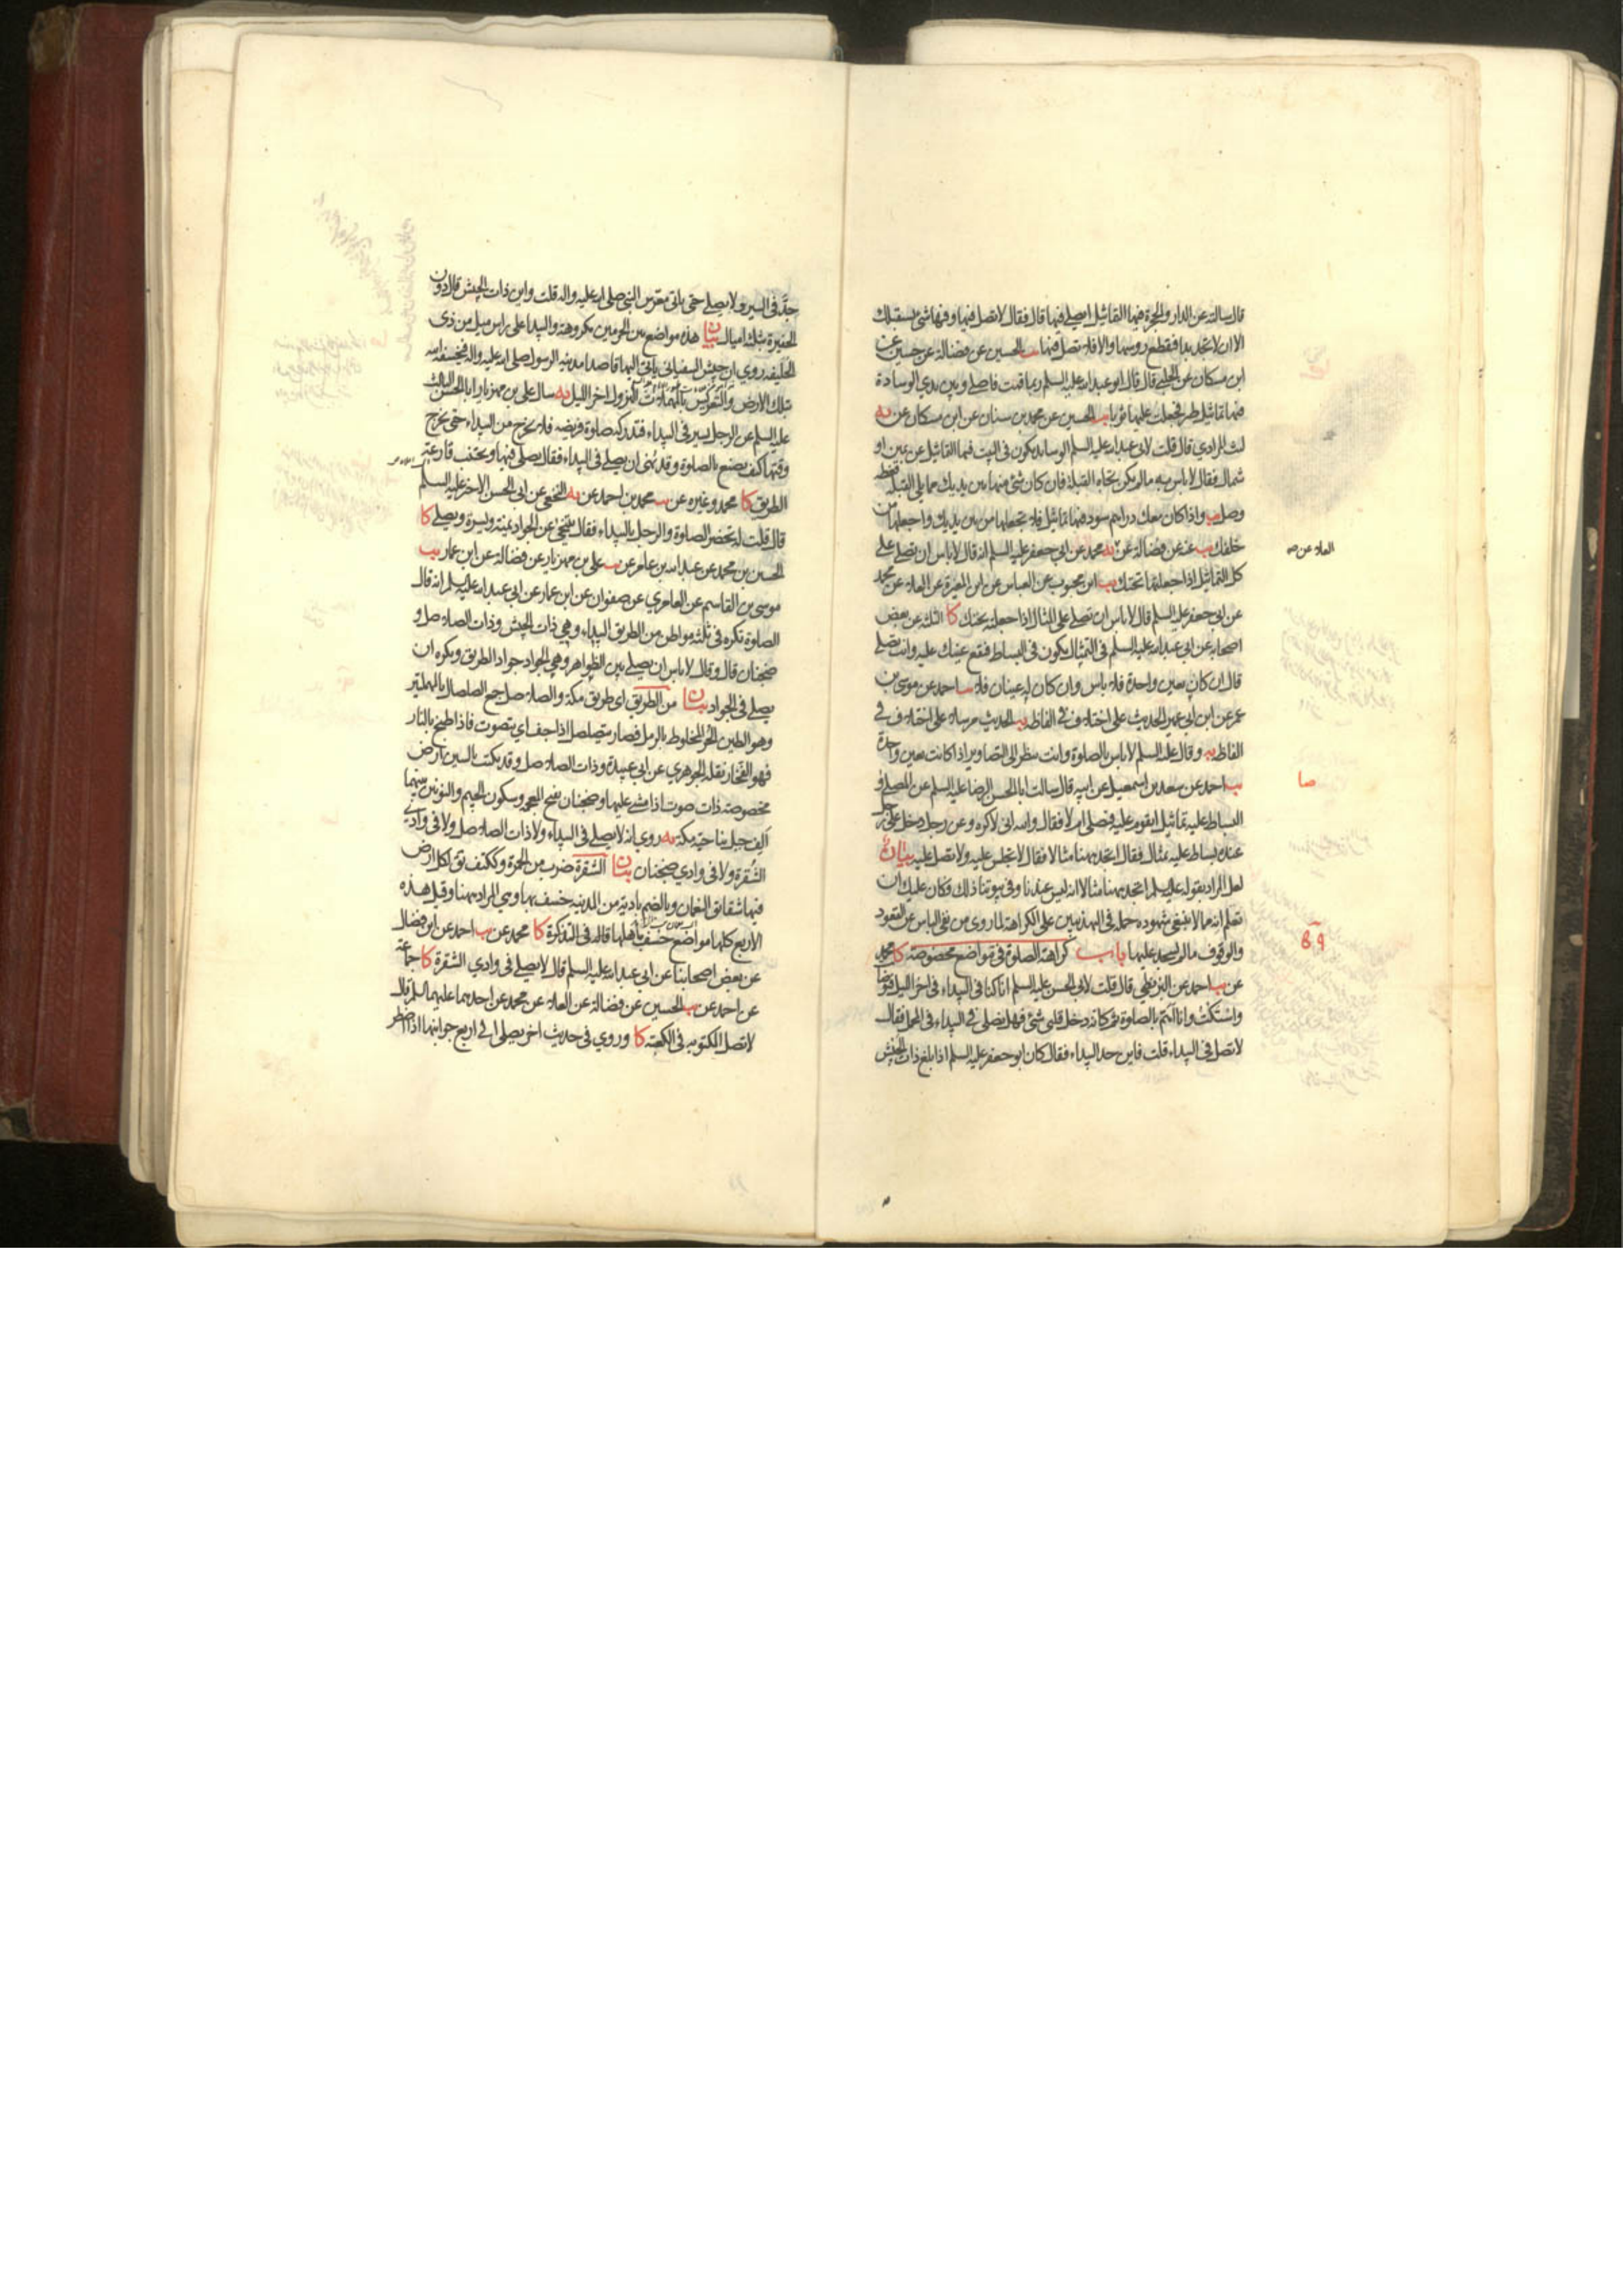 قال سالته عن الدار والحجرة فيها التماثيل ايصلي فيها قال فقال لا تصل فيها وفيها شئ يستقبلك
الا ان لا تجد بدا فتقطع روسها والا فلا تصل فيها يب الحسين عن فضالة عن حسين عن
ابن مسكان عن الحلبي قال قال ابو عبد الله عليه السلم ربما قمت فاصلي وبين يدي الوسادة
فيها تماثيل طير فجعلت عليها ثوبا يب الحسين عن محمد بن سنان عن ابن مسكان عن به
ليث المرادي قال قلت لابي عبد الله عليه السلم الوسايد يكون في البيت فيها التماثيل عن يمين او
شمال فقال لا باس به ما لم يكن تجاه القبلة فان كان شئ منها بين يديك مما يلي القبلة فغطه
وصل يب واذا كان معك دراهم سود فيها تماثيل فلا تجعلها من بين يديك واجعلها من
خلفك يب عنه عن فضالة عن به محمد عن ابي جعفر عليه السلم انه قال لا باس ان تصلي على
العلا عن صه
كل التماثيل اذا جعلتها تحتك يب ابن محبوب عن العباس عن ابن المغيرة عن العلا عن محمد
عن ابي جعفر عليه السلم قال لا باس ان تصلي على المثال اذا جعلته تحتك كا الثلثة عن بعض
اصحابه عن ابي عبد الله عليه السلم في التمثال يكون في البساط فتقع عينك عليه وانت تصلي
قال ان كان بعين واحدة فلا باس وان كان له عينان فلا يب احمد عن موسى بن
عمر عن ابن ابي عمير الحديث على اختلاف في الفاظه يه الحديث مرسلا على اختلاف في
الفاظه يه وقال عليه السلم لا باس بالصلوة وانت تنظر الى التصاوير اذا كانت بعين واحدة
صا
يب احمد عن سعد بن اسمعيل عن ابيه قال سالت ابا الحسن الرضا عليه السلم عن المصلي و
البساط عليه تماثيل ايقوم عليه فيصلي ام لا فقال والله اني لاكره وعن رجل دخل على رجل
عنده بساط عليه تمثال فقال اتجد ههنا مثالا فقال لا تجلس عليه ولا تصل عليه بيان
لعل المراد بقوله عليه السلم اتجد ههنا مثالا انه ليس عندنا وفي بيوتنا ذلك فكان عليك ان
تعلم انه مما لا ينبغي شهوده حمله في التهذيبين على الكراهة لما روي من نفي الباس عن القعود
والوقوف ما لم يسجد عليها باب كراهة الصلوة في مواضع مخصوصة كا محمد
عن يب احمد عن البزنطي قال قلت لابي الحسن عليه السلم انا كنا في البيداء في اخر الليل فتوضأت
واستكت وانا اهم بالصلوة ثم كانه دخل قلبي شئ فهل يصلى في البيداء في المحمل فقال
لا تصل في البيداء قلت فاين حد البيداء فقال كان ابو جعفر عليه السلم اذا بلغ ذات الجيش
جد في السير ولا يصلي حتى ياتي معرس النبي صلى الله عليه واله قلت واين ذات الجيش قال دون
الحفيرة بثلثة اميال بيان هذه مواضع بين الحرمين مكروهة والبيداء على راس ميل من ذي
الحليفة روي ان جيش السفياني ياتي اليها قاصدا مدينة الرسول صلى الله عليه واله فيخسف الله
بتلك الارض والتعريس بالمهملات النزول اخر الليل يه سال علي بن مهزيار ابا الحسن الثالث
عليه السلم عن الرجل يسير في البيداء فتدركه صلوة فريضة فلا يخرج من البيداء حتى يخرج
وقتها كيف يصنع بالصلوة وقد نهي ان يصلي في البيداء فقال يصلي فيها ويجتنب قارعة
الطريق كا محمد وغيره عن يب محمد بن احمد عن يه النخعي عن ابي الحسن الاخير عليه السلم
قال قلت له تحضر الصلوة والرجل بالبيداء فقال يتنحى عن الجواد يمنة ويسرة ويصلي كا
الحسين بن محمد عن عبد الله بن عامر عن يب علي بن مهزيار عن فضالة عن ابن عمار يب
موسى بن القاسم عن العامري عن صفوان عن ابن عمار عن ابي عبد الله عليه السلم انه قال
الصلوة تكره في ثلثة مواطن من الطريق البيداء وهي ذات الجيش وذات الصلاصل و
ضجنان قال وقال لا باس ان يصلي بين الظواهر وهي الجواد جواد الطريق ويكره ان
يصلي في الجواد بيان من الطريق اي طريق مكة والصلاصل جمع الصلصال بالمهملتين
وهو الطين الحر المخلوط بالرمل فصار يتصلصل اذا جف اي يتصوت فاذا طبخ بالنار
فهو الفخار نقله الجوهري عن ابي عبيدة وذات الصلاصل وقد يكتب بالسين ارض
مخصوصة ذات صوت اذا مشي عليها وضجنان بفتح المعجمة وسكون الجيم والنونين بينهما
الف جبل بناحية مكة يه روي انه لا يصلي في البيداء ولا ذات الصلاصل ولا في وادي
الشقرة ولا في وادي ضجنان بيان الشقرة ضرب من الحمرة وككتف يق لكل ارض
فيها شقائق النعمان وبالضم بادية من المدينة خسف بها وهي المراد ههنا وقيل هذه
الاربع كلها مواضع خسف باهلها قاله في التذكرة كا محمد عن يب احمد عن ابن فضال
عن بعض اصحابنا عن ابي عبد الله عليه السلم قال لا يصلي في وادي الشقرة كا جماعة
عن احمد عن يب الحسين عن فضالة عن العلا عن محمد عن احدهما عليهما السلم قال
لا تصل المكتوبة في الكعبة كا وروي في حديث اخر يصلي الى اربع جوانبها اذا اضطر